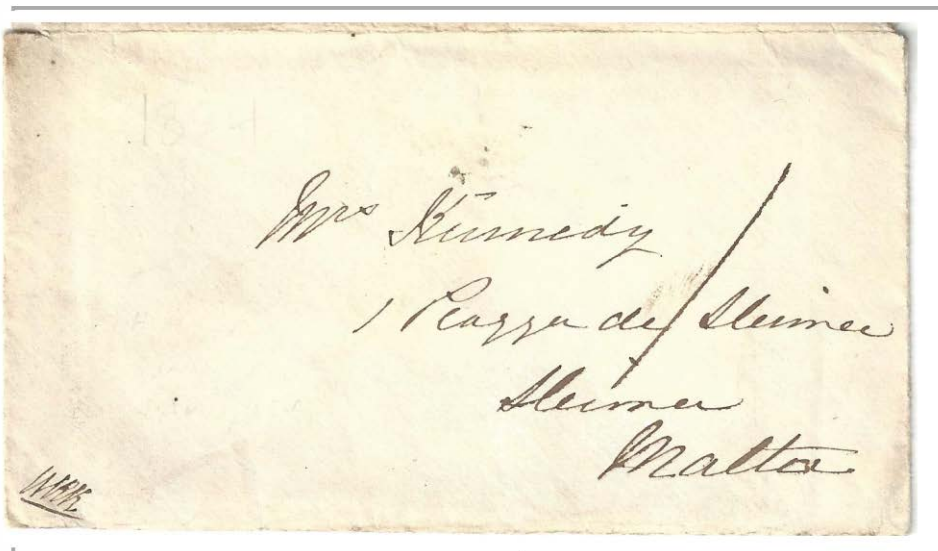 Mrs Kennedy
1 Piazza de Sleimer
Sleimer
Malta